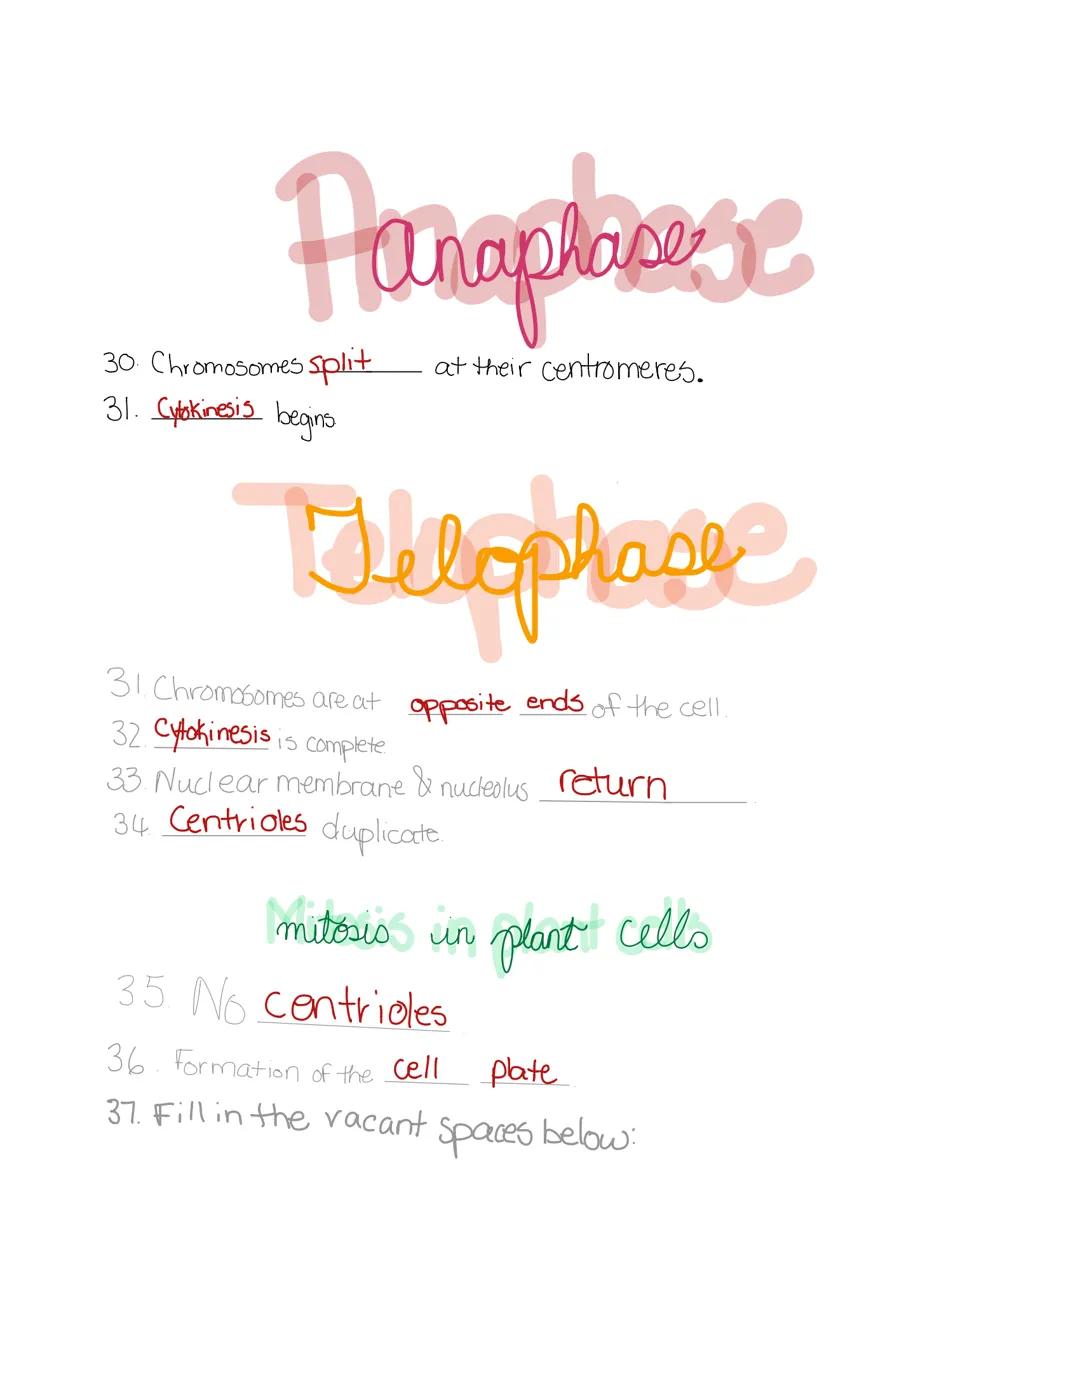 Anaphase
anaphase
30. Chromosomes split at their centromeres.
31. Cytokinesis begins
Telophase
Telophase
31. Chromosomes are at opposite ends of the cell.
32. Cytokinesis is complete.
33. Nuclear membrane & nucleolus return.
34. Centrioles duplicate.
Mitosis in plant cells
mitosis in plant cells
35. No centrioles
36. Formation of the cell plate.
37. Fill in the vacant spaces below: